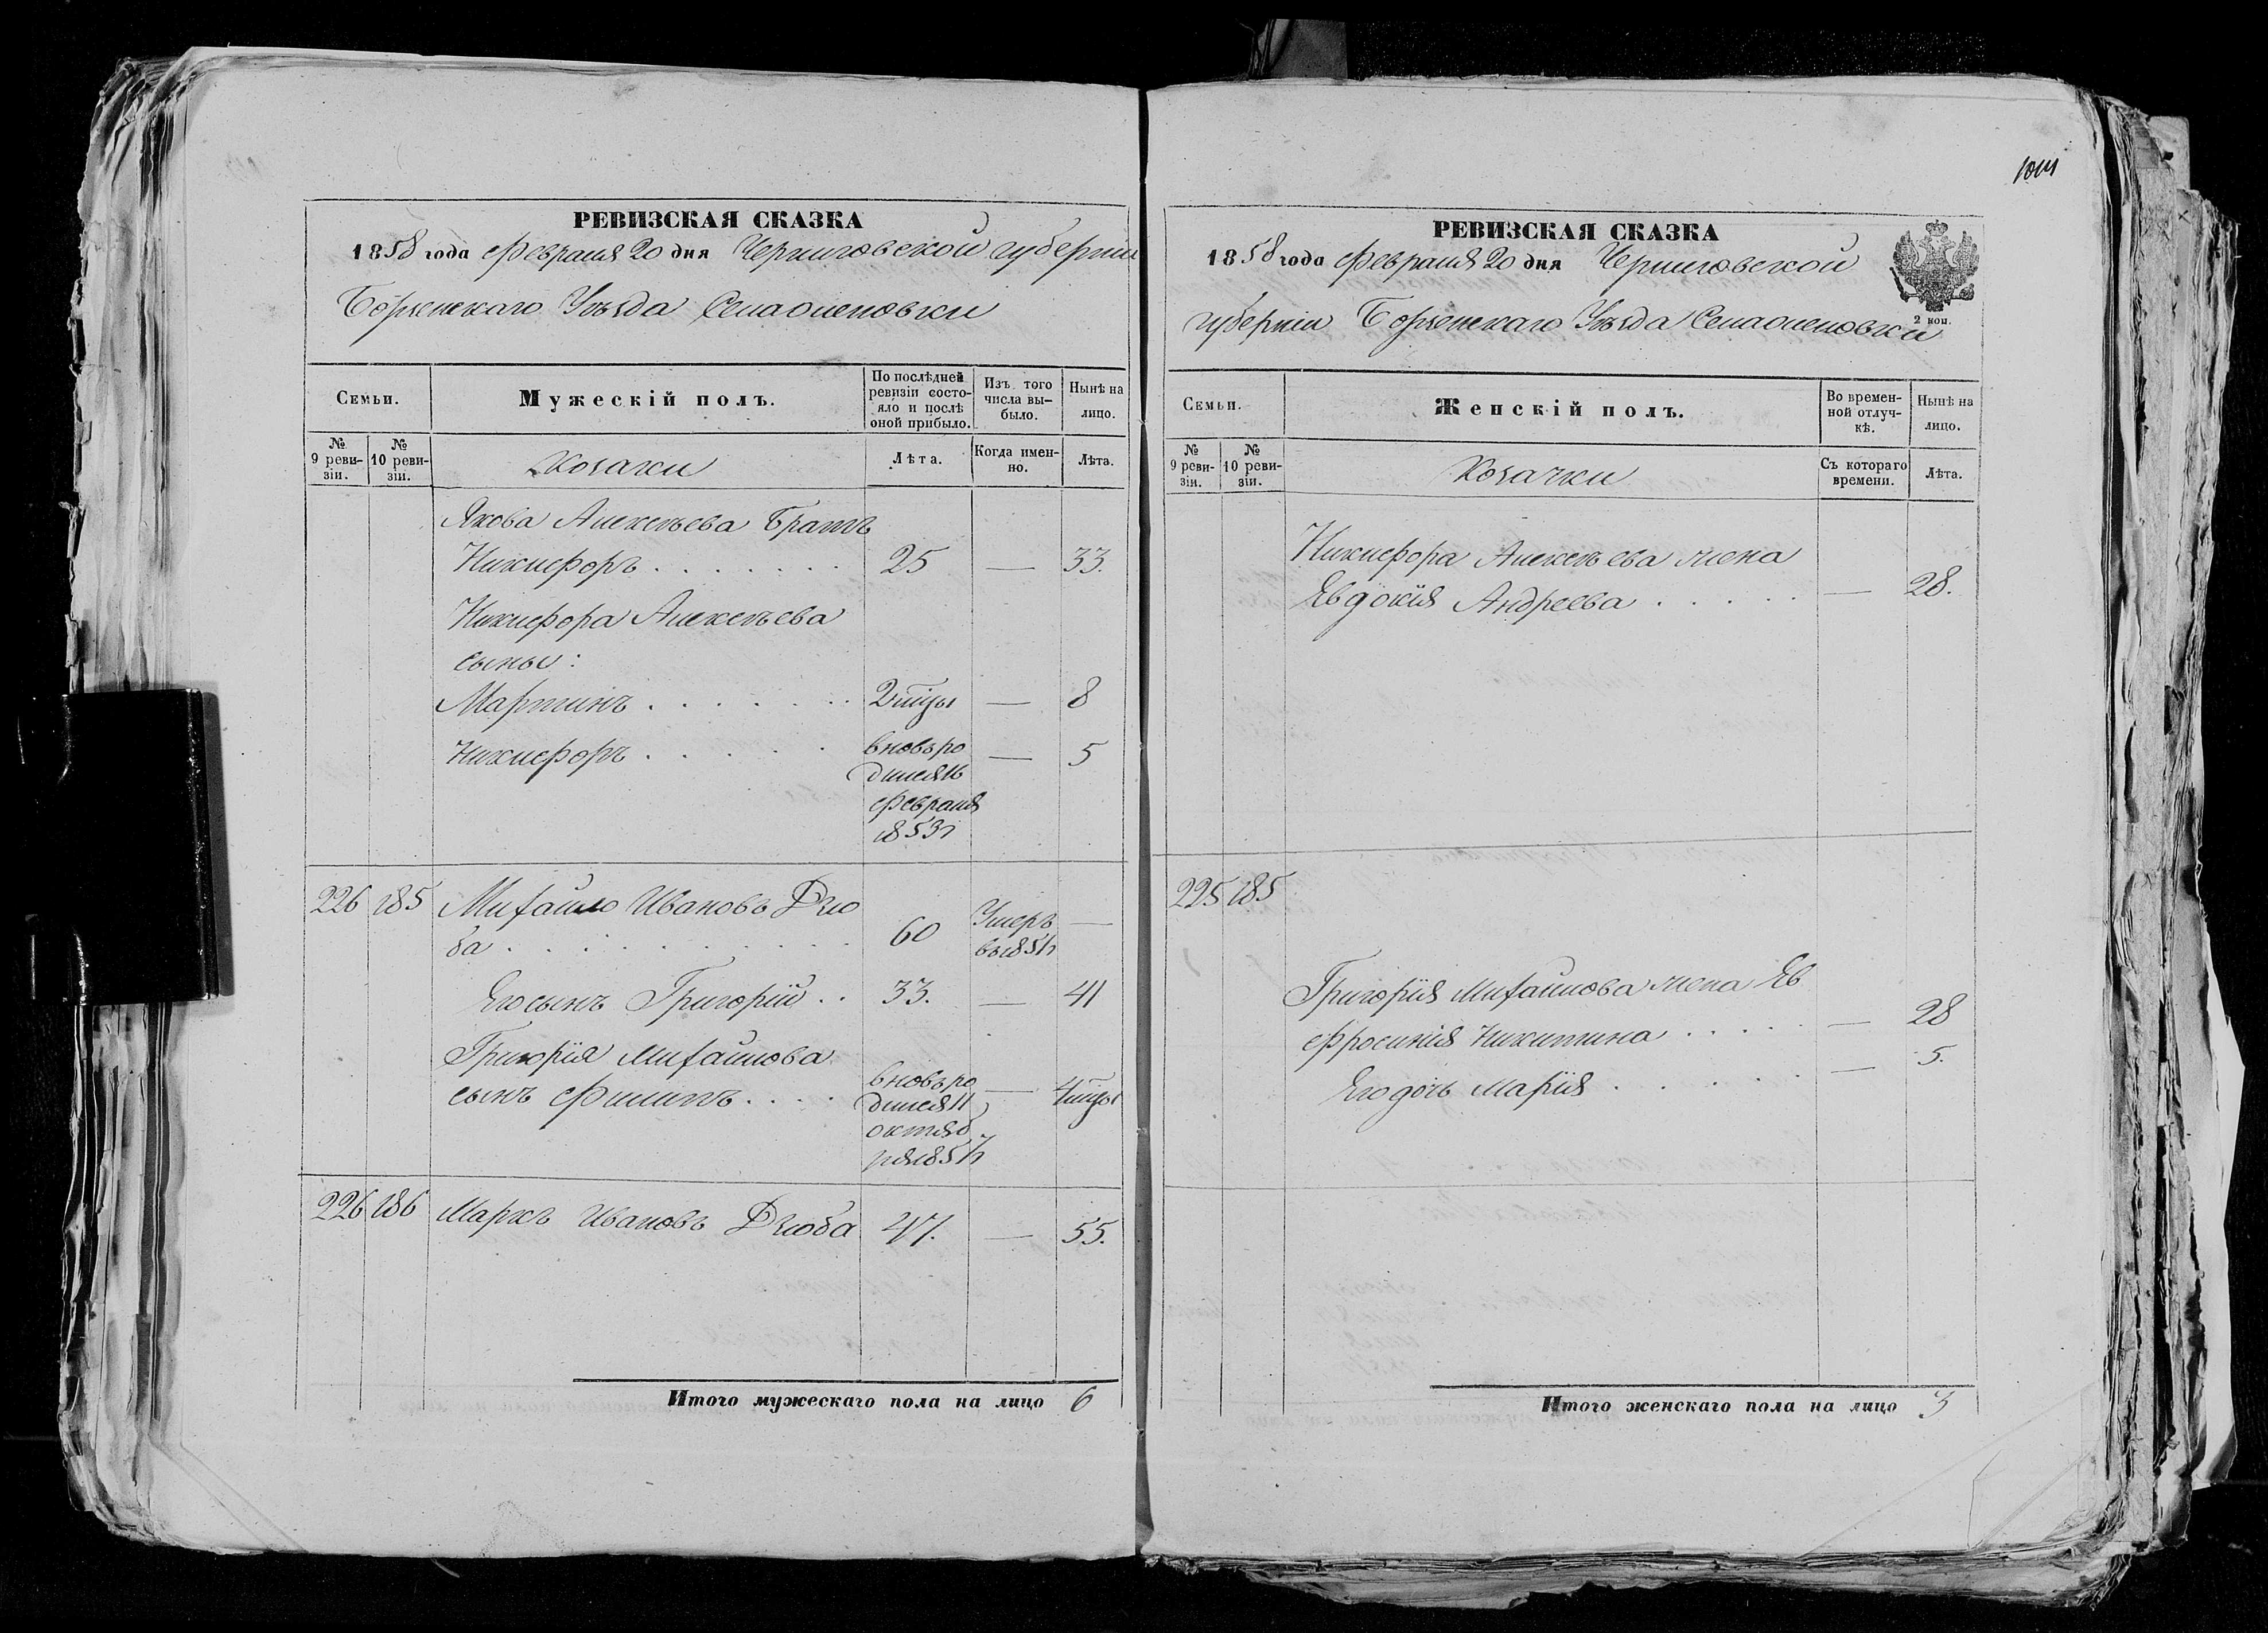 1044
РЕВИЗСКАЯ СКАЗКА
1858 года Февраля 20 дня Черниговской губернии
Борзенскаго Уѣзда Села Оленовки
Семьи.
Мужескій полъ.
По послѣдней ревизіи состо-яло и послѣ оной прибыло.
Изъ того числа вы-было.
Нынѣ на лицо.
№ 9 реви-зіи.
№ 10 реви-зіи.
Козаки
Лѣта.
Когда имен-но.
Лѣта.
Якова Алексѣева Братъ
Никифоръ . . . . . . . 25 — 33.
Никифора Алексѣева
сыны:
Мартинъ . . . . . . 2 мцы — 8
Никифоръ . . . . . вновь ро — 5
дился 16
Февраля
1853 г
226 185 Михайло Ивановъ Дзю
ба . . . . . . . . . 60 Умеръ —
въ 1851 г
Его сынъ Григорій . . 33. — 41
Григорія Михайлова
сынъ Филипъ . . . . вновь ро — 4 мцы
дился 11
октяб
ря 1857 г
226 186 Маркъ Ивановъ Дзюба 47. — 55.
Итого мужескаго пола на лицо 6
РЕВИЗСКАЯ СКАЗКА
1858 года Февраля 20 дня Черниговской
губерніи Борзенскаго Уѣзда Села Оленовки
2 коп.
Семьи.
Женскій полъ.
Во времен-ной отлуч-кѣ.
Нынѣ на лицо.
№ 9 реви-зіи.
№ 10 реви-зіи.
Козачки
Съ котораго времени.
Лѣта.
Никифора Алексѣева жена
Явдокія Андреева . . . . . — 28.
225 185
Григорія Михайлова жена Яв
фросинія Никитина . . . . . — 28
Его дочь Марія . . . . . — 5.
Итого женскаго пола на лицо 3